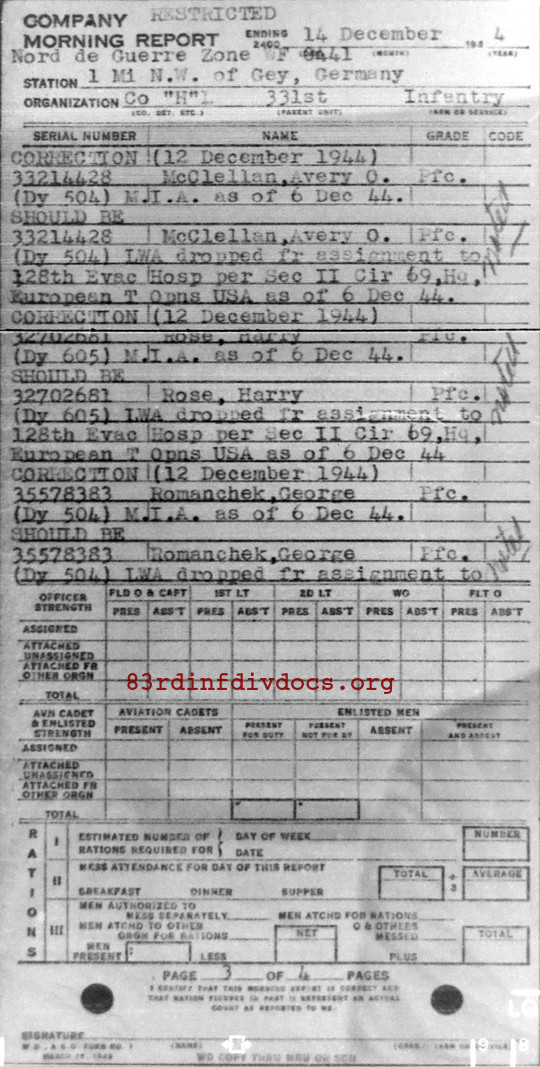 COMPANY RESTRICTED
MORNING REPORT ENDING 2400 14 December 194 4
(MONTH) (YEAR)
Nord de Guerre Zone WF 0441
STATION 1 Mi N.W. of Gey, Germany
ORGANIZATION Co "H"L 331st Infantry
(CO. DET. ETC.) (PARENT UNIT) (ARM OR SERVICE)
SERIAL NUMBER NAME GRADE CODE
CORRECTION (12 December 1944)
33214428 McClellan,Avery O. Pfc.
(Dy 504) M.I.A. as of 6 Dec 44.
SHOULD BE
33214428 McClellan,Avery O. Pfc.
(Dy 504) LWA dropped fr assignment to
128th Evac Hosp per Sec II Cir 69,Hq,
European T Opns USA as of 6 Dec 44.
CORRECTION (12 December 1944)
32702681 Rose, Harry Pfc.
(Dy 605) M.I.A. as of 6 Dec 44.
SHOULD BE
32702681 Rose, Harry Pfc.
(Dy 605) LWA dropped fr assignment to
128th Evac Hosp per Sec II Cir 69,Hq,
European T Opns USA as of 6 Dec 44
CORRECTION (12 December 1944)
35578383 Romanchek,George Pfc.
(Dy 504) M.I.A. as of 6 Dec 44.
SHOULD BE
35578383 Romanchek,George Pfc.
(Dy 504) LWA dropped fr assignment to
noted
noted
noted
OFFICER STRENGTH FLD O & CAPT 1ST LT 2D LT WO FLT O
PRES ABS'T PRES ABS'T PRES ABS'T PRES ABS'T PRES ABS'T
ASSIGNED
ATTACHED UNASSIGNED
ATTACHED FR OTHER ORGN
TOTAL
83rdinfdivdocs.org
AVN CADET & ENLISTED STRENGTH AVIATION CADETS ENLISTED MEN
PRESENT ABSENT PRESENT FOR DUTY PRESENT NOT FOR DY ABSENT PRESENT AND ABSENT
ASSIGNED
ATTACHED UNASSIGNED
ATTACHED FR OTHER ORGN
TOTAL
RATIONS
I ESTIMATED NUMBER OF RATIONS REQUIRED FOR DAY OF WEEK DATE NUMBER
II MESS ATTENDANCE FOR DAY OF THIS REPORT TOTAL ÷ 3 AVERAGE
BREAKFAST DINNER SUPPER
III MEN AUTHORIZED TO MESS SEPARATELY MEN ATCHD FOR RATIONS
MEN ATCHD TO OTHER ORGN FOR RATIONS NET O & OTHERS MESSED TOTAL
MEN PRESENT LESS PLUS
PAGE 3 OF 4 PAGES
I CERTIFY THAT THIS MORNING REPORT IS CORRECT AND
THAT RATION FIGURES IN PART II REPRESENT AN ACTUAL
COUNT AS REPORTED TO ME.
SIGNATURE
W D , A G O FORM NO. 1
(NAME)
MARCH
WD COPY THRU MRU OR SCU